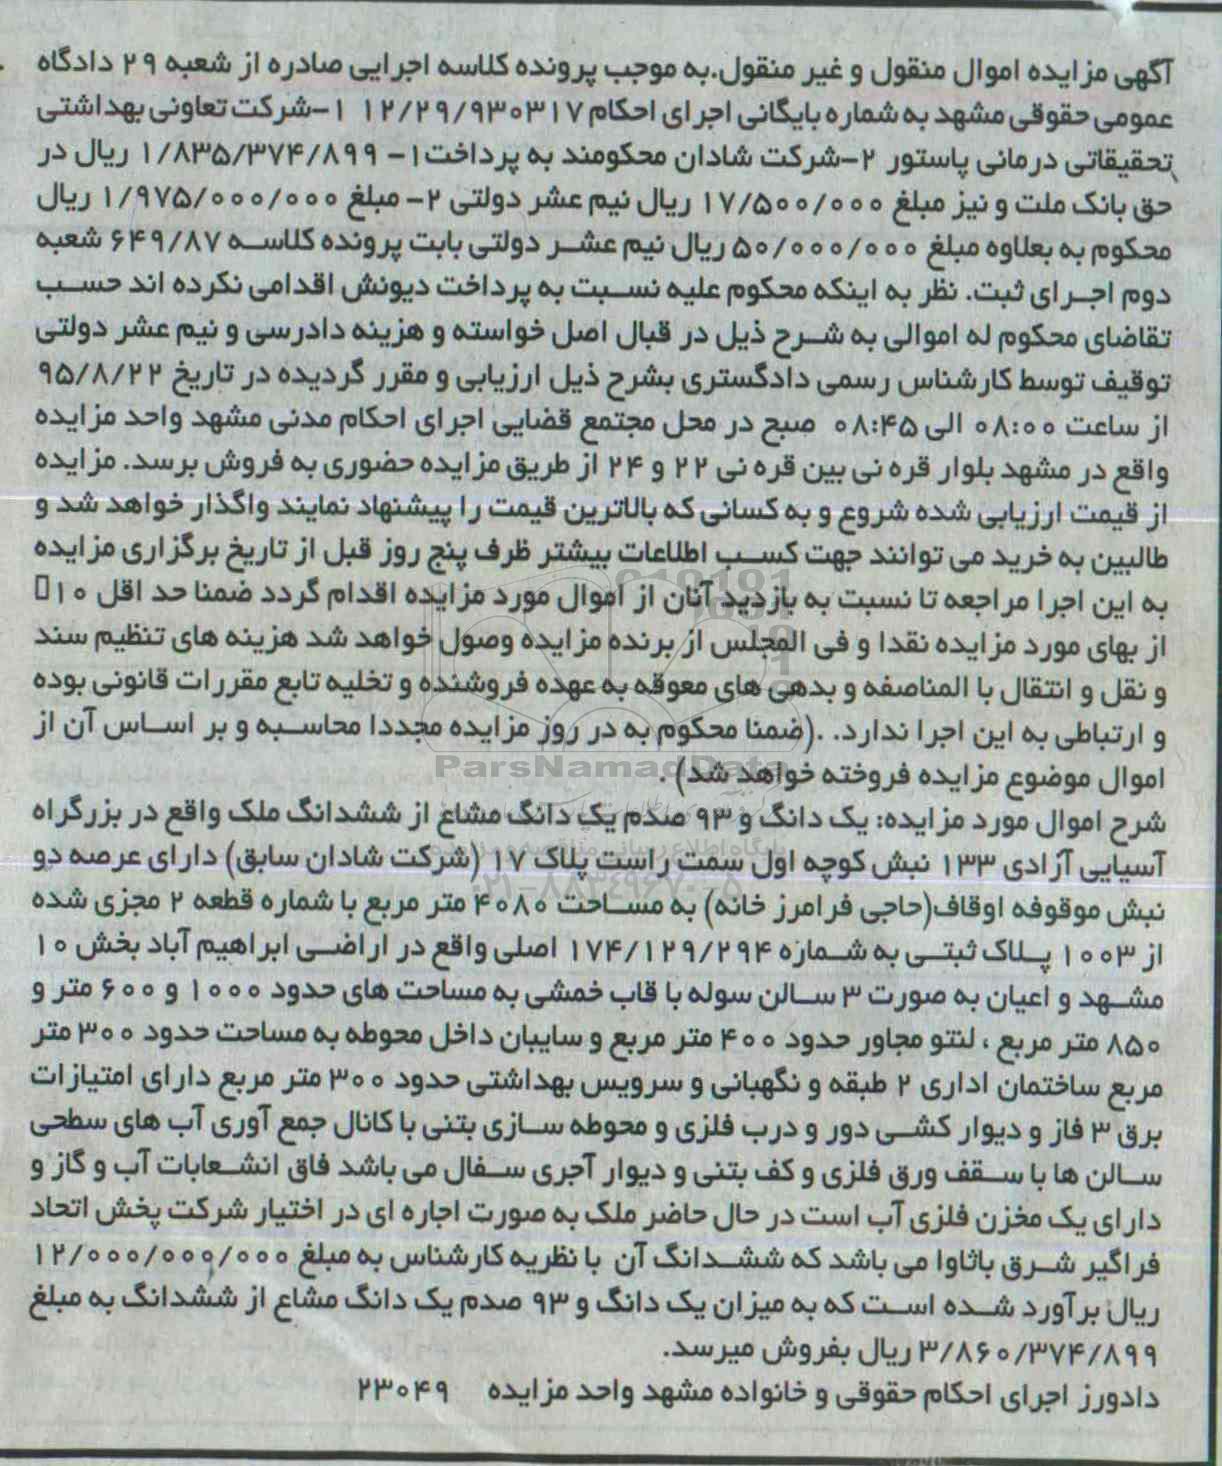 آگهی مزایده اموال منقول و غیر منقول.به موجب پرونده کلاسه اجرایی صادره از شعبه ۲۹ دادگاه
عمومی حقوقی مشهد به شماره بایگانی اجرای احکام ۱۲/۲۹/۹۳۰۳۱۷ ۱-شرکت تعاونی بهداشتی
تحقیقاتی درمانی پاستور ۲-شرکت شادان محکومند به پرداخت۱- ۱/۸۳۵/۳۷۴/۸۹۹ ریال در
حق بانک ملت و نیز مبلغ ۱۷/۵۰۰/۰۰۰ ریال نیم عشر دولتی ۲- مبلغ ۱/۹۷۵/۰۰۰/۰۰۰ ریال
محکوم به بعلاوه مبلغ ۵۰/۰۰۰/۰۰۰ ریال نیم عشر دولتی بابت پرونده کلاسه ۶۴۹/۸۷ شعبه
دوم اجرای ثبت. نظر به اینکه محکوم علیه نسبت به پرداخت دیونش اقدامی نکرده اند حسب
تقاضای محکوم له اموالی به شرح ذیل در قبال اصل خواسته و هزینه دادرسی و نیم عشر دولتی
توقیف توسط کارشناس رسمی دادگستری بشرح ذیل ارزیابی و مقرر گردیده در تاریخ ۹۵/۸/۲۲
از ساعت ۰۸:۰۰ الی ۰۸:۴۵ صبح در محل مجتمع قضایی اجرای احکام مدنی مشهد واحد مزایده
واقع در مشهد بلوار قره نی بین قره نی ۲۲ و ۲۴ از طریق مزایده حضوری به فروش برسد. مزایده
از قیمت ارزیابی شده شروع و به کسانی که بالاترین قیمت را پیشنهاد نمایند واگذار خواهد شد و
طالبین به خرید می توانند جهت کسب اطلاعات بیشتر ظرف پنج روز قبل از تاریخ برگزاری مزایده
به این اجرا مراجعه تا نسبت به بازدید آنان از اموال مورد مزایده اقدام گردد ضمنا حد اقل ۱۰▯
از بهای مورد مزایده نقدا و فی المجلس از برنده مزایده وصول خواهد شد هزینه های تنظیم سند
و نقل و انتقال با المناصفه و بدهی های معوقه به عهده فروشنده و تخلیه تابع مقررات قانونی بوده
و ارتباطی به این اجرا ندارد. .(ضمنا محکوم به در روز مزایده مجددا محاسبه و بر اساس آن از
اموال موضوع مزایده فروخته خواهد شد) .
ParsNamadData
شرح اموال مورد مزایده: یک دانگ و ۹۳ صدم یک دانگ مشاع از ششدانگ ملک واقع در بزرگراه
آسیایی آزادی ۱۳۳ نبش کوچه اول سمت راست پلاک ۱۷ (شرکت شادان سابق) دارای عرصه دو
نبش موقوفه اوقاف(حاجی فرامرز خانه) به مساحت ۴۰۸۰ متر مربع با شماره قطعه ۲ مجزی شده
از ۱۰۰۳ پلاک ثبتی به شماره ۱۷۴/۱۲۹/۲۹۴ اصلی واقع در اراضی ابراهیم آباد بخش ۱۰
مشهد و اعیان به صورت ۳ سالن سوله با قاب خمشی به مساحت های حدود ۱۰۰۰ و ۶۰۰ متر و
۸۵۰ متر مربع ، لنتو مجاور حدود ۴۰۰ متر مربع و سایبان داخل محوطه به مساحت حدود ۳۰۰ متر
مربع ساختمان اداری ۲ طبقه و نگهبانی و سرویس بهداشتی حدود ۳۰۰ متر مربع دارای امتیازات
برق ۳ فاز و دیوار کشی دور و درب فلزی و محوطه سازی بتنی با کانال جمع آوری آب های سطحی
سالن ها با سقف ورق فلزی و کف بتنی و دیوار آجری سفال می باشد فاق انشعابات آب و گاز و
دارای یک مخزن فلزی آب است در حال حاضر ملک به صورت اجاره ای در اختیار شرکت پخش اتحاد
فراگیر شرق باثاوا می باشد که ششدانگ آن با نظریه کارشناس به مبلغ ۱۲/۰۰۰/۰۰۰/۰۰۰
ریال برآورد شده است که به میزان یک دانگ و ۹۳ صدم یک دانگ مشاع از ششدانگ به مبلغ
۳/۸۶۰/۳۷۴/۸۹۹ ریال بفروش میرسد.
دادورز اجرای احکام حقوقی و خانواده مشهد واحد مزایده ۲۳۰۴۹